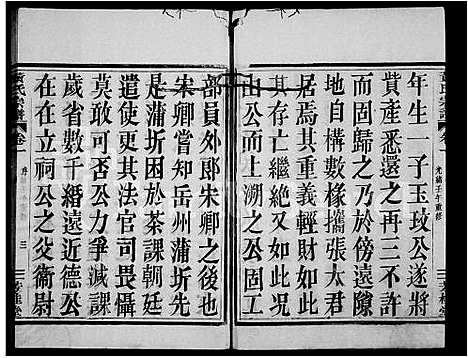 年生一子玉玟公遂將
貲產悉還之再三不許
而固歸之乃於傍遠隙
地自構數椽攜張太君
居焉其重義輕財如此
其存亡繼絕又如此况
由公而上溯之公固工
部員外郎宋卿之後也
宋卿嘗知岳州蒲圻先
是蒲圻困於茶課朝廷
遣使更其法官司畏其
莫敢可否公力爭減課
歲省數千緡遠近德公
在在立祠公之父衛尉
黃氏宗譜
卷一
三
光緒壬午重修